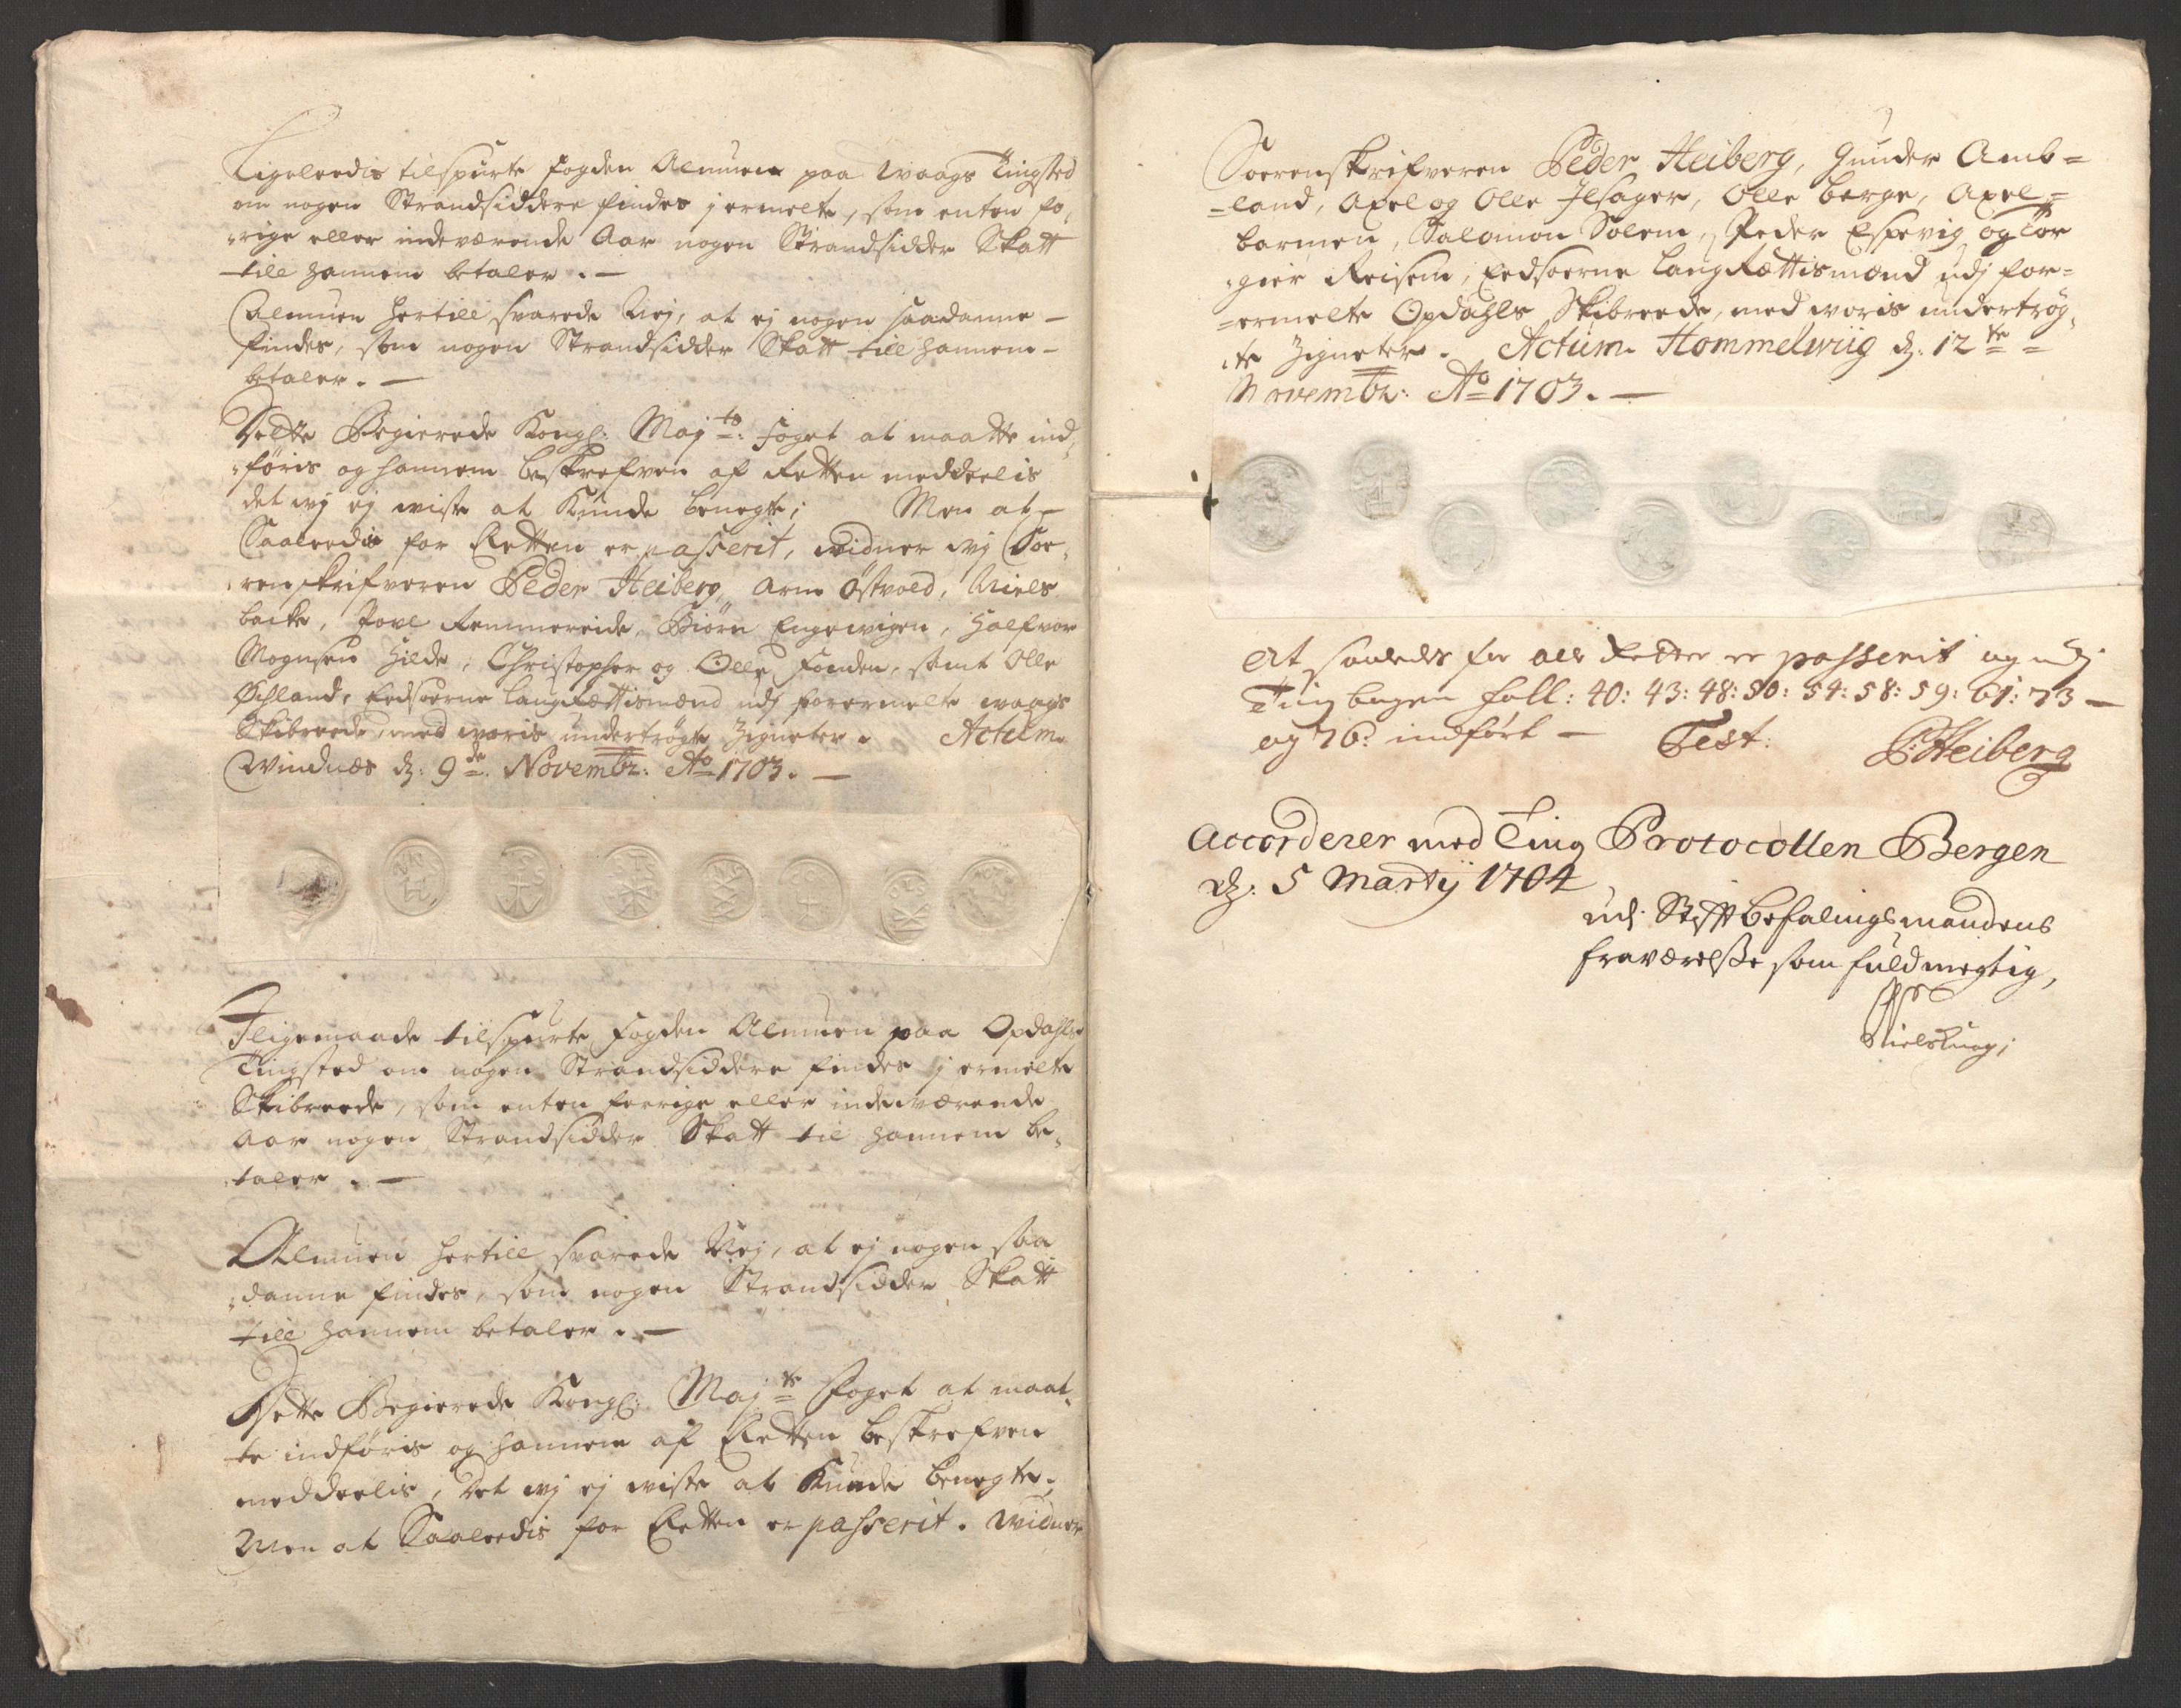 Ligeleedis tilspurte fogden Almuen paa Waags Tingsted
om nogen Strandsiddere findes j ermelte, som enten fo,
,rige eller indeværende Aar nogen Strandsidder Skatt
till hannem betaler. —
Almuen hertill svarede Nej, at ej nogen saadanne —
findes, som nogen Strandsidder Skatt till hannem —
betaler. —
Dette Begierede Kongl: Maj ts: foget at maatte ind,
,føris og hannem beskrefven af Retten meddeelis
det wj ej wiste at Kunde benegte; Men at —
Saaleedis for Retten er passerit, widner wj Soe,
,renskrifveren Peder Heiberg, Arne Østvold, Niels
backe, Povl Remmereide, Biørn Engewigen, Halfvor
Mognsen Hilde, Christopher og Olle Fonden, samt Olle
Øchland, Eedsoerne LaugRettismænd udj forermelte waags
Skibreede, med woris undertrögte Zigneter. Actum
Windnæs d: 9 de Novembr: Ao 1703. —
Jligemaade tilspurte fogden Almuen paa Opdahls
Tingsted om nogen Strandsiddere findes j ermelte
Skibreede, som enten forrige eller indeværende
Aar nogen Strandsidder Skatt til hannem be,
,taler. —
Almuen hertill svarede Nej, at ej nogen saa
,danne findes, som nogen Strandsidder Skatt
till hannem betaler. —
Dette Begierede Kongl: Maj ts Foget at maat,
te indføris og hannem af Retten beskrefven
meddeelis, Det wj ej wiste at Kunde benegte.
Men at Saaleedis for Retten er passerit. widner
Soerenskrifveren Peder Heiberg, Gunder Amb=
=land, Axel og Olle Jlsager, Olle berge, Axel =
barmen, Salomon Solem, Peder Espevig og Tor
,gier Reisem, Eedsoerne LaugRettismænd udj for=
=ermelte Opdahls Skibreede, med woris undertrög,
,te Zigneter. Actum Hommelwiig d: 12 te =
Novembr: Ao 1703. —
At saaledes for alle Retter er passerit og udj
Tingbogen foll: 40: 43: 48: 50: 54: 58: 59: 61: 73 —
og 76: indført — Test:
PHeiberg
Accorderer med Ting Protocollen Bergen
d: 5 Martij 1704
udj Stiftbefalingsmandens
fraværelsse som fuldmegtig,
Niels